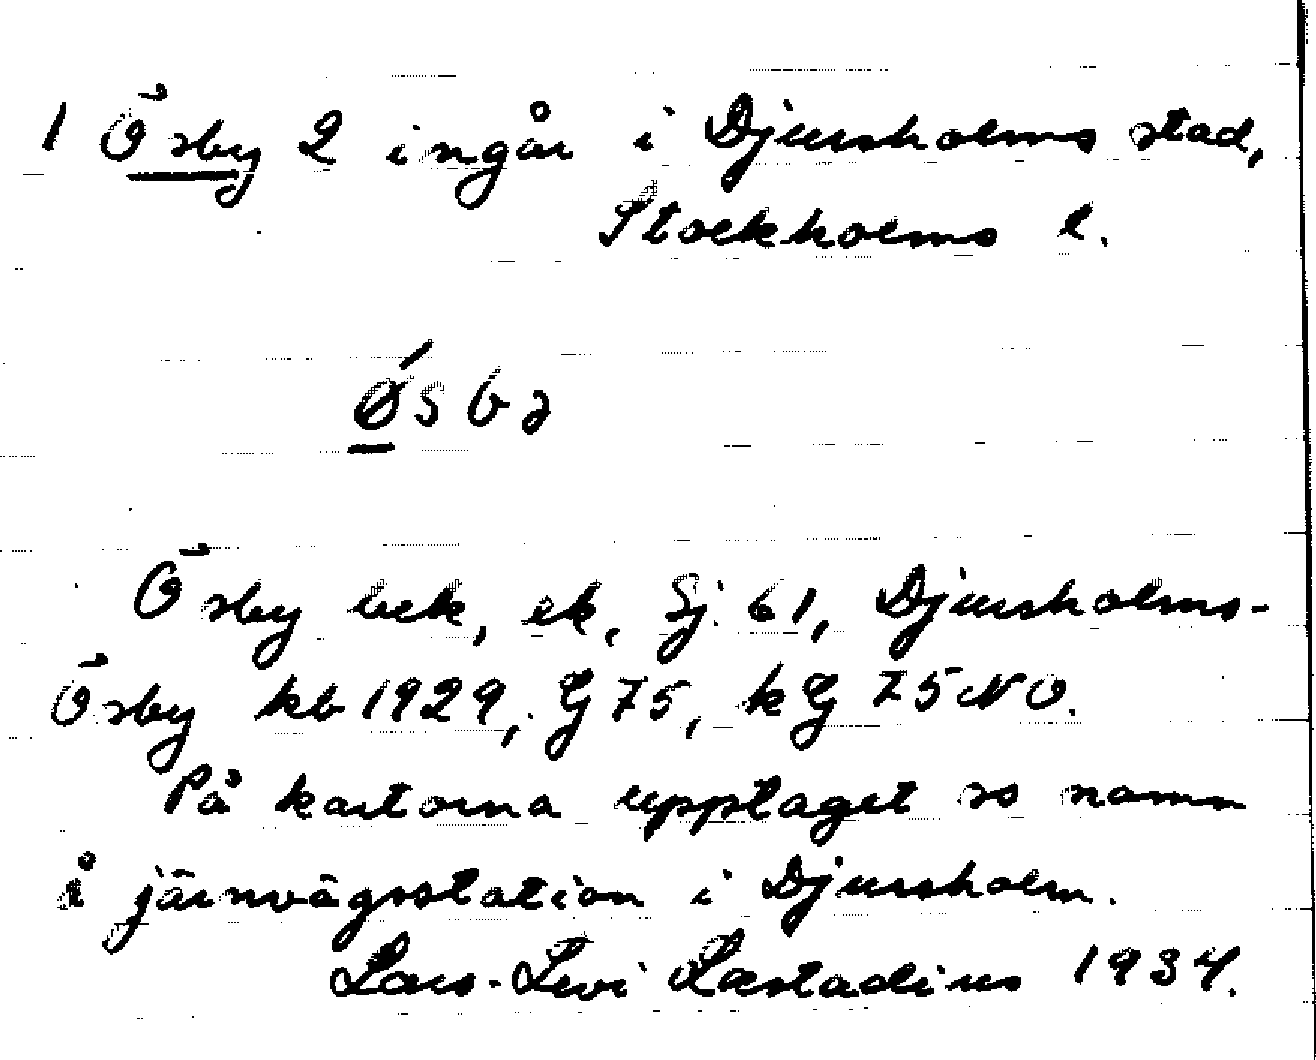 1 Ösby 2 ingår i Djursholms stad,
Stockholms l.
Ösby bebk, ek, Sj. 61, Djursholms-
Ösby kb 1929, G 75, kG 75 NO.
På kartorna upptaget so namn
å järnvägsstation i Djursholm.
Lars-Levi Læstadius 1934.